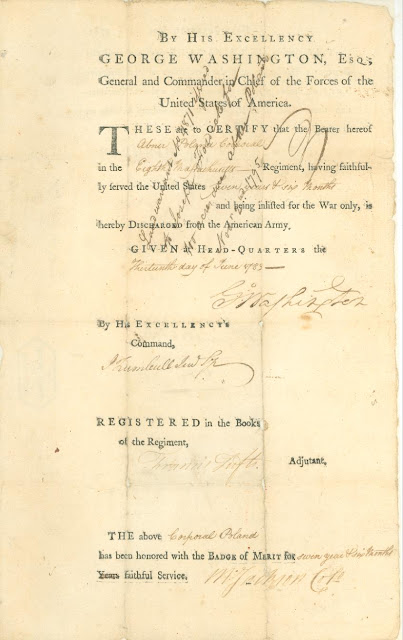 BY HIS EXCELLENCY
GEORGE WASHINGTON, Esq;
General and Commander in Chief of the Forces of the
United States of America.
THESE are to CERTIFY that the Bearer hereof
Abner Poland Corporal
in the Eighth Massachusetts Regiment, having faithful-
ly served the United States seven years & six Months
and being inlisted for the War only, is
hereby DISCHARGED from the American Army.
GIVEN at HEAD-QUARTERS the
Thirteenth day of June 1783
Go Washington
By HIS EXCELLENCY'S
Command,
J Trumbull Junr Sy
REGISTERED in the Books
of the Regiment,
Francis Tufts Adjutant,
THE above Corporal Poland
has been honored with the BADGE of MERIT for seven year & six Months
Years faithful Service. M Jackson Colo
Land warrant No
to Joseph
Nov 1795